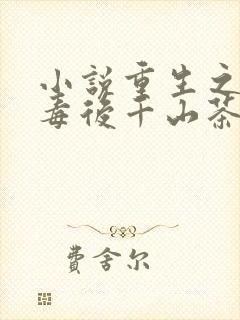 小説重生之
毒後千山茶
費舍尔